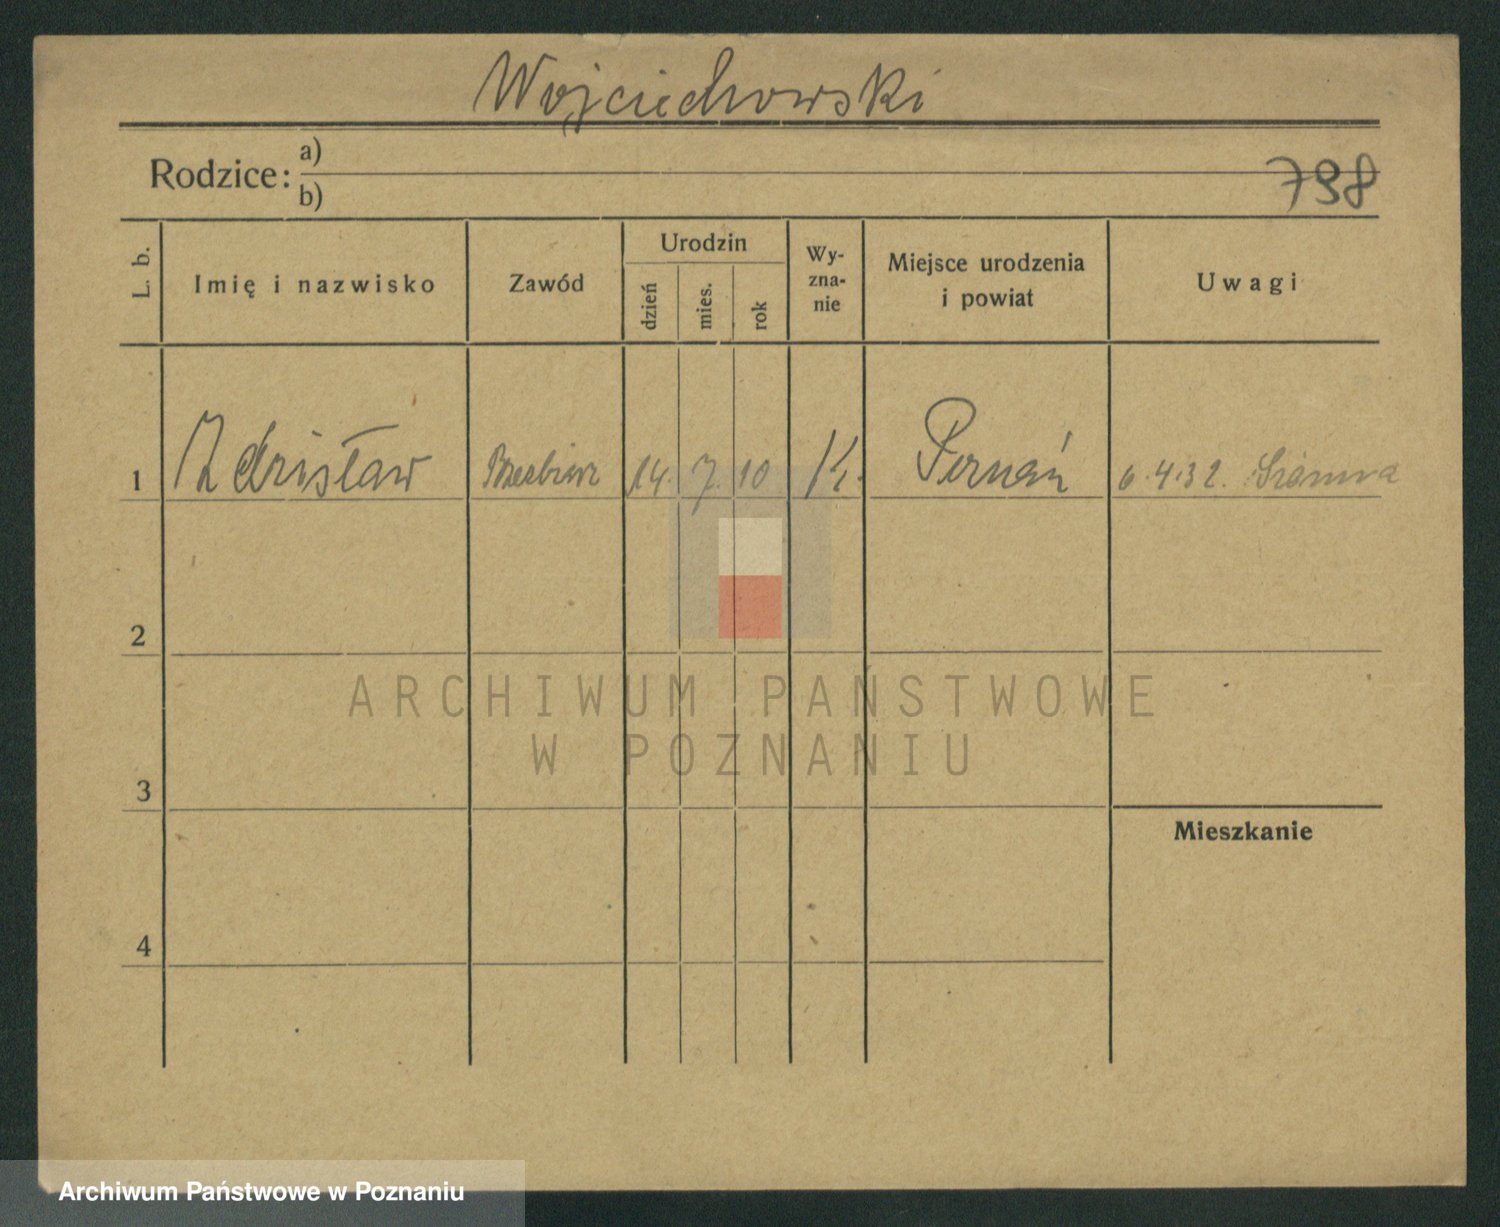 Wojciechowski
Rodzice: a)
b)
798
L. b.
Imię i nazwisko
Zawód
Urodzin
dzień
mies.
rok
Wy-
zna-
nie
Miejsce urodzenia
i powiat
Uwagi
1 Zdzisław 14. 7. 10 K. Poznań 6.4.32.
2
3
Mieszkanie
4
ARCHIWUM PAŃSTWOWE
W POZNANIU
Archiwum Państwowe w Poznaniu